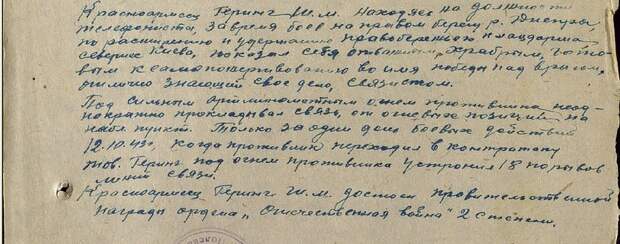 Красноармеец Геринг Ш.М. находясь на должности
телефониста, за время боев на правом берегу р. Днепра,
по расширению и удержанию правобережного плацдарма
севернее Киева, показал себя отважным, храбрым, гото-
вым к самопожертвованию во имя победы над врагом,
отлично знающий свое дело, связистом.
Под сильным артминометным огнем противника неод-
нократно прокладывал связь, от огневых позиций на
набл. пункт. Только за один день боевых действий
12.10.43г, когда противник переходил в контратаку
тов. Геринг под огнем противника устранил 18 порывов
линий связи.
Красноармеец Геринг Ш.М. достоин правительственной
награды ордена „Отечественная война" 2 степени.